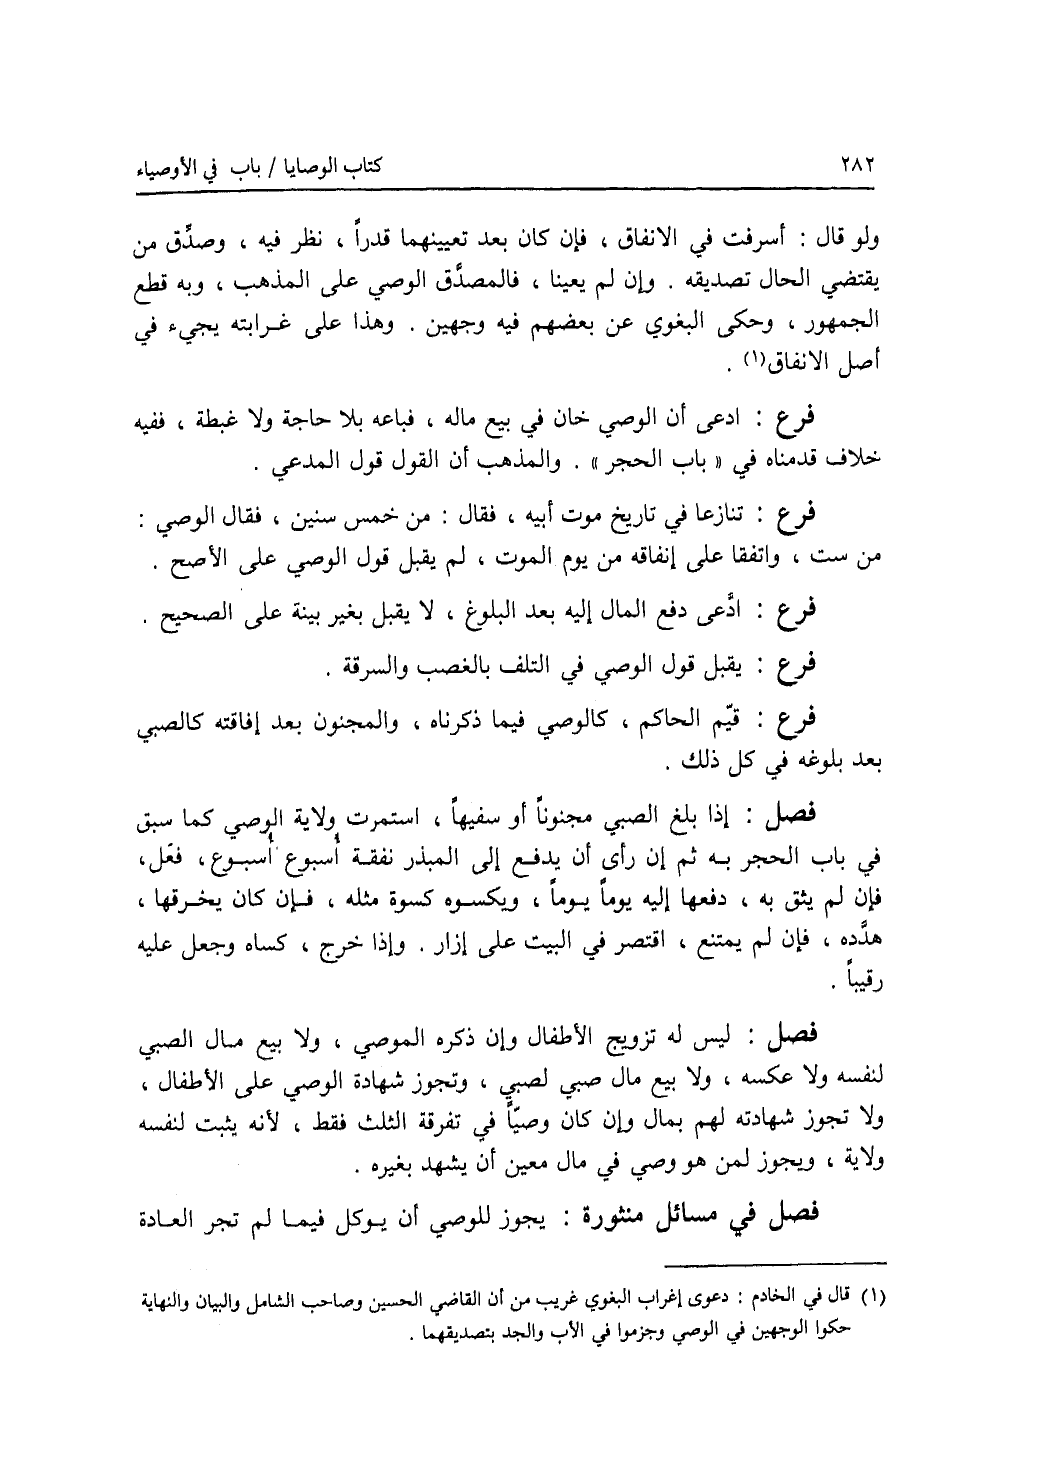 ٢٨٢
كتاب الوصايا / باب في الأوصياء
ولو قال : أسرفت في الانفاق ، فإن كان بعد تعيينهما قدراً ، نظر فيه ، وصدِّق من
يقتضي الحال تصديقه . وإن لم يعينا ، فالمصدَّق الوصي على المذهب ، وبه قطع
الجمهور ، وحكى البغوي عن بعضهم فيه وجهين . وهذا على غرابته يجيء في
أصل الانفاق(١) .
فرع : ادعى أن الوصي خان في بيع ماله ، فباعه بلا حاجة ولا غبطة ، ففيه
خلاف قدمناه في « باب الحجر » . والمذهب أن القول قول المدعي .
فرع : تنازعا في تاريخ موت أبيه ، فقال : من خمس سنين ، فقال الوصي :
من ست ، واتفقا على إنفاقه من يوم الموت ، لم يقبل قول الوصي على الأصح .
فرع : ادَّعى دفع المال إليه بعد البلوغ ، لا يقبل بغير بينة على الصحيح .
فرع : يقبل قول الوصي في التلف بالغصب والسرقة .
فرع : قيّم الحاكم ، كالوصي فيما ذكرناه ، والمجنون بعد إفاقته كالصبي
بعد بلوغه في كل ذلك .
فصل : إذا بلغ الصبي مجنوناً أو سفيهاً ، استمرت ولاية الوصي كما سبق
في باب الحجر به ثم إن رأى أن يدفع إلى المبذر نفقة أسبوع أسبوع ، فعَل ،
فإن لم يثق به ، دفعها إليه يوماً يوماً ، ويكسوه كسوة مثله ، فإن كان يخرقها ،
هدَّده ، فإن لم يمتنع ، اقتصر في البيت على إزار . وإذا خرج ، كساه وجعل عليه
رقيباً .
فصل : ليس له تزويج الأطفال وإن ذكره الموصي ، ولا بيع مال الصبي
لنفسه ولا عكسه ، ولا بيع مال صبي لصبي ، وتجوز شهادة الوصي على الأطفال ،
ولا تجوز شهادته لهم بمال وإن كان وصيّاً في تفرقة الثلث فقط ، لأنه يثبت لنفسه
ولاية ، ويجوز لمن هو وصي في مال معين أن يشهد بغيره .
فصل في مسائل منثورة : يجوز للوصي أن يوكل فيما لم تجر العادة
(١) قال في الخادم : دعوى إغراب البغوي غريب من أن القاضي الحسين وصاحب الشامل والبيان والنهاية
حكوا الوجهين في الوصي وجزموا في الأب والجد بتصديقهما .